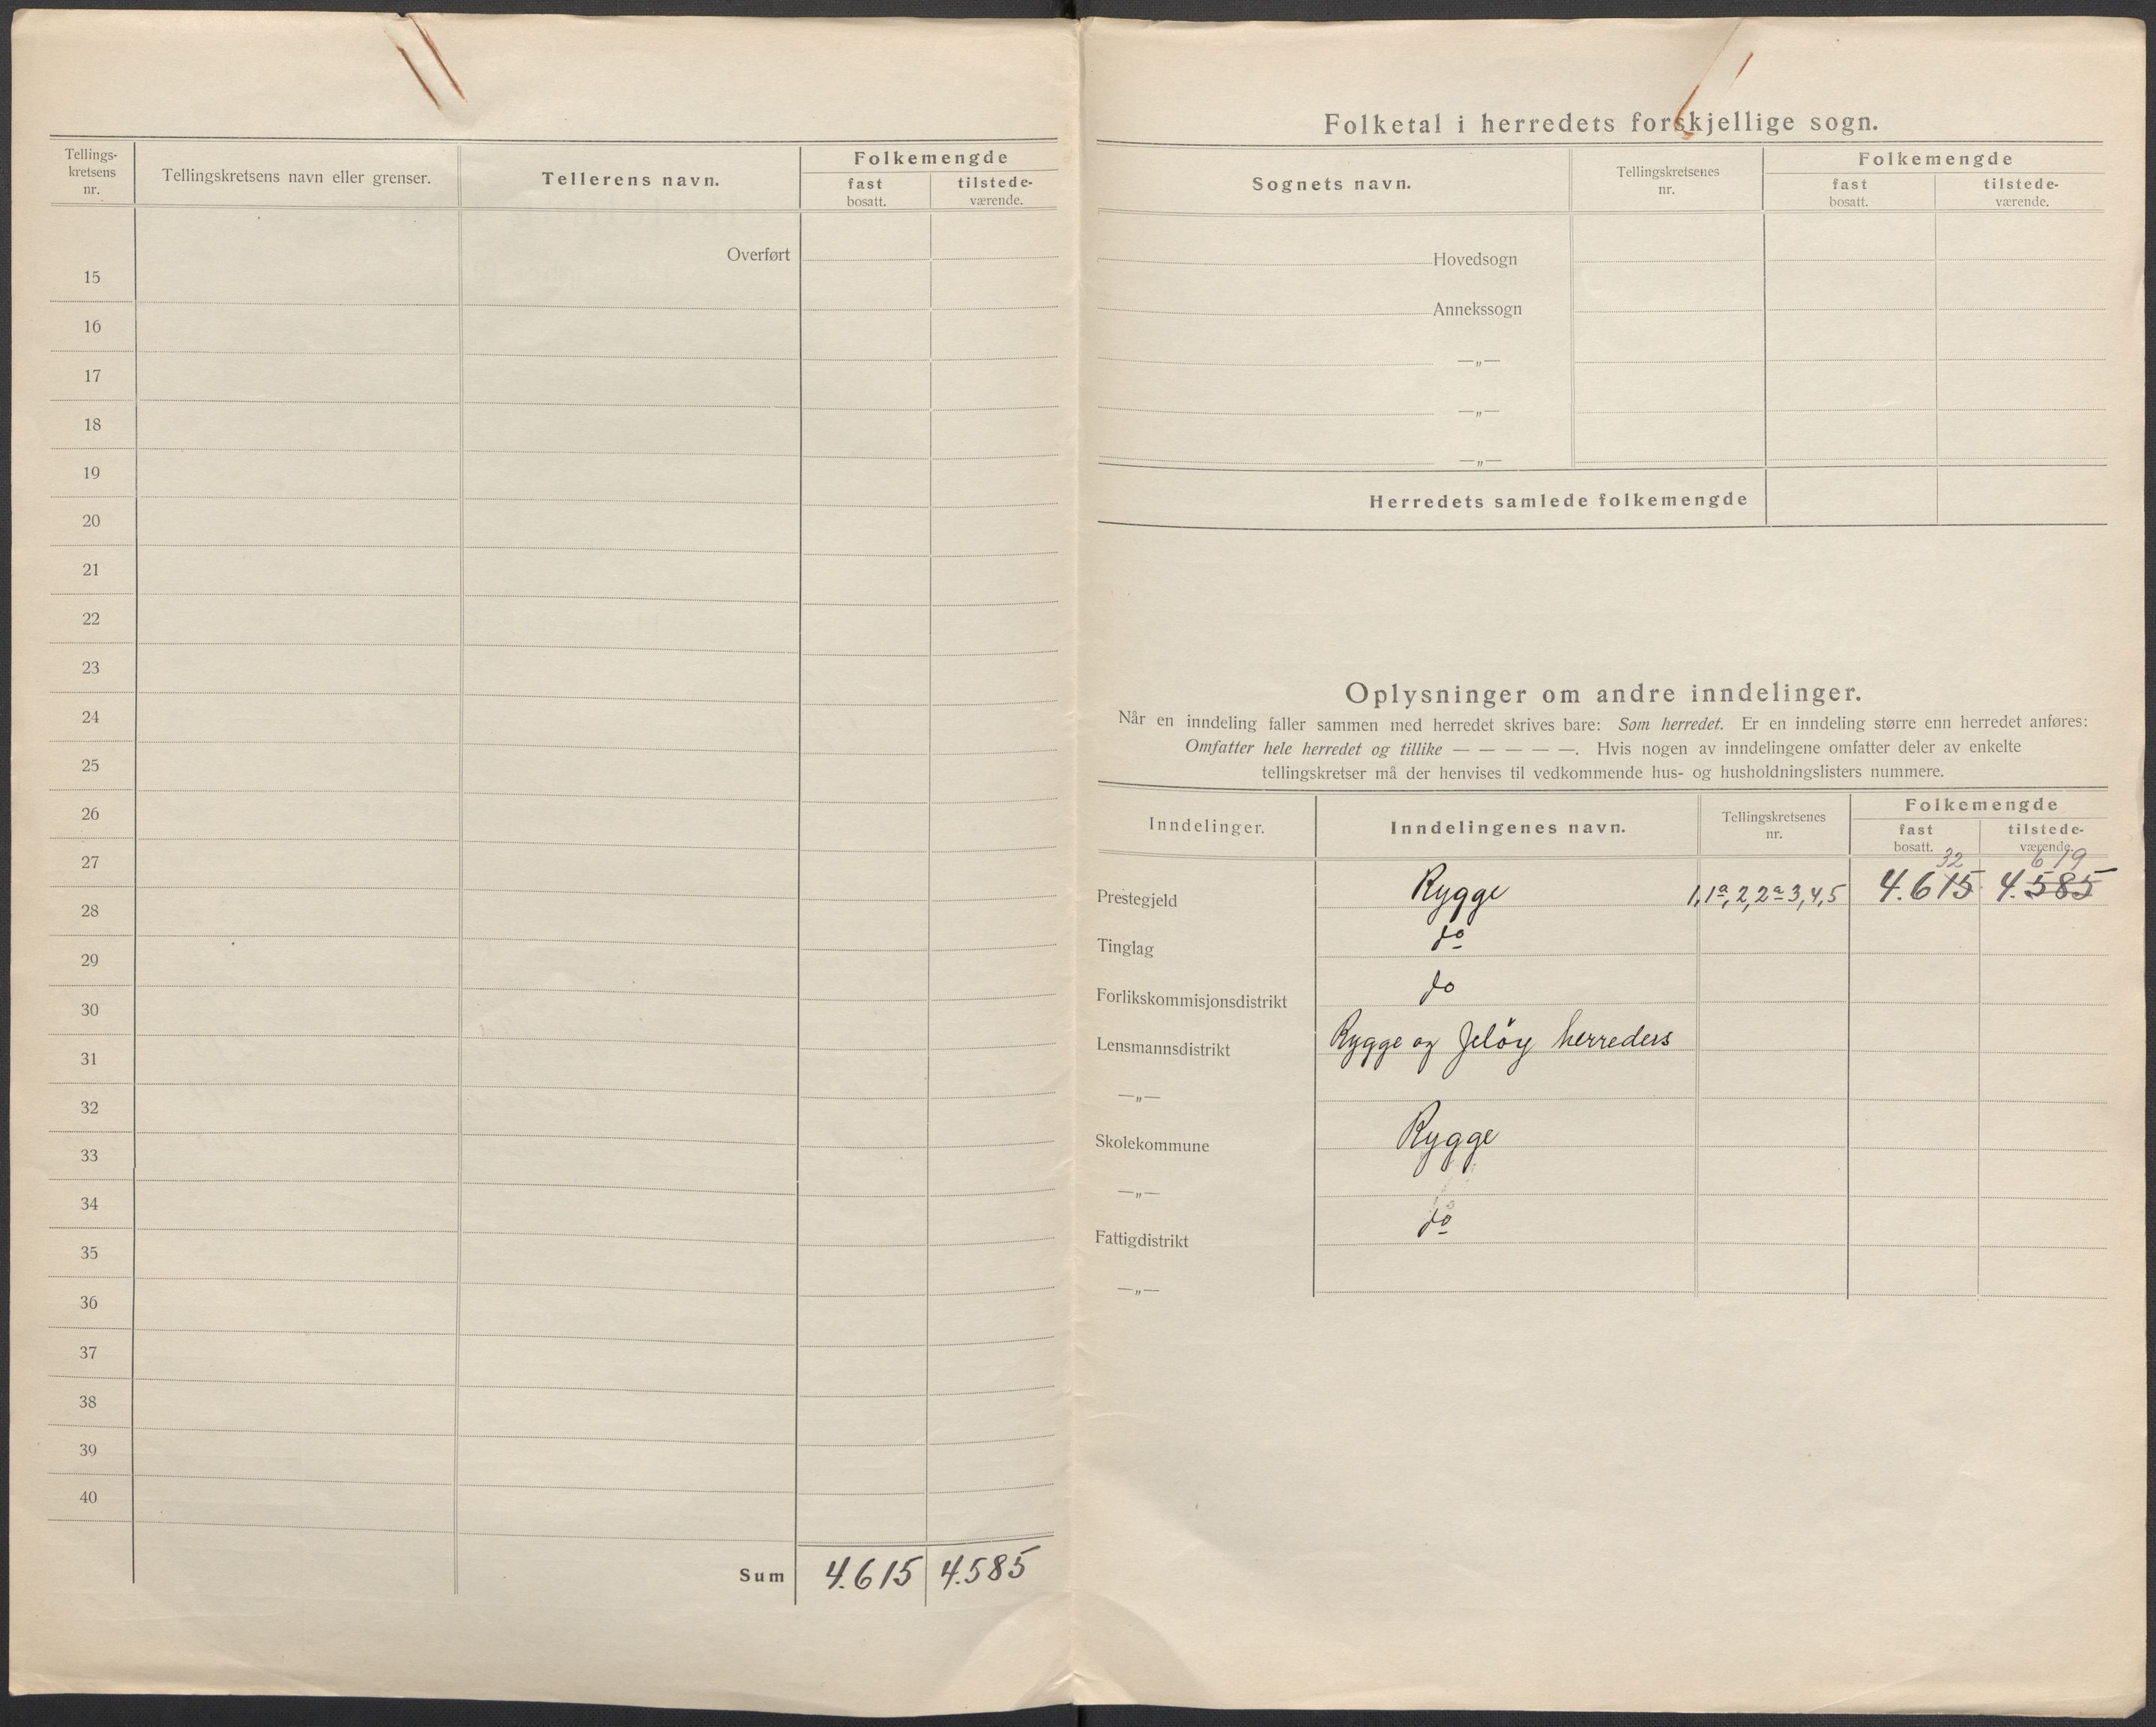 Tellings-
kretsens
nr.
Tellingskretsens navn eller grenser.
Tellerens navn.
Folkemengde
fast
bosatt.
tilstede-
værende.
Overført
15
16
17
18
19
20
21
22
23
24
25
26
27
28
29
30
31
32
33
34
35
36
37
38
39
40
Sum 4.615 4.585
Folketal i herredets forskjellige sogn.
Sognets navn.
Tellingskretsenes
nr.
Folkemengde
fast
bosatt.
tilstede-
værende.
Hovedsogn
Annekssogn
—„—
—„—
—„—
Herredets samlede folkemengde
Oplysninger om andre inndelinger.
Når en inndeling faller sammen med herredet skrives bare: Som herredet. Er en inndeling større enn herredet anføres:
Omfatter hele herredet og tillike — — — — —. Hvis nogen av inndelingene omfatter deler av enkelte
tellingskretser må der henvises til vedkommende hus- og husholdningslisters nummere.
Inndelinger.
Inndelingenes navn.
Tellingskretsenes
nr.
Folkemengde
fast
bosatt.
tilstede-
værende.
32 619
Prestegjeld Rygge 1,1a,2,2a 3,4,5 4.615 4.585
Tinglag do
Forlikskommisjonsdistrikt do
Lensmannsdistrikt Rygge og Jeløy herreders
—„—
Skolekommune Rygge
—„—
Fattigdistrikt do
—„—